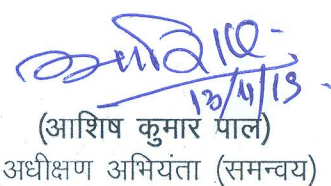 13/11/19
(आशिष कुमार पाल)
अधीक्षण अभियंता (समन्वय)